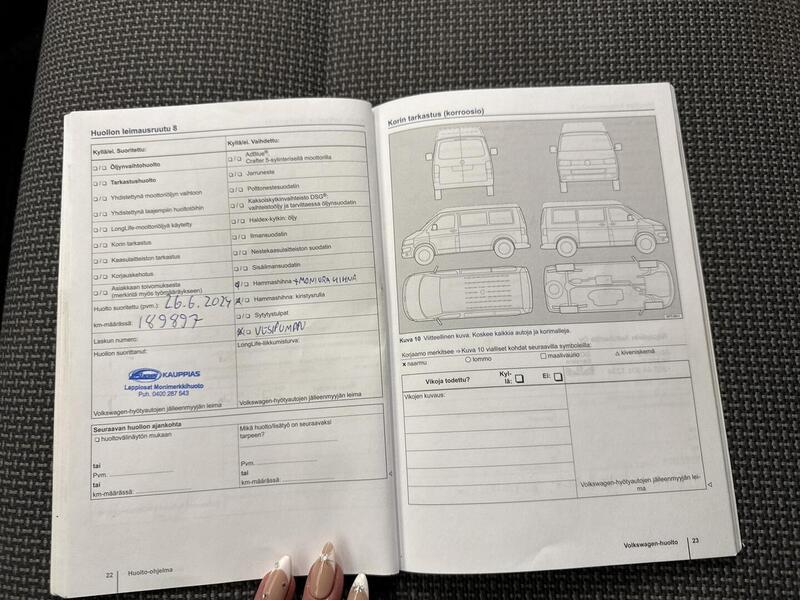 Huollon leimausruutu 8
Kyllä/ei, Suoritettu:
❏ / ❏ Öljynvaihtohuolto
❏ / ❏ Tarkastushuolto
❏ / ❏ Yhdistettynä moottoriöljyn vaihtoon
❏ / ❏ Yhdistettynä laajempiin huoltotöihin
❏ / ❏ LongLife-moottoriöljyä käytetty
❏ / ❏ Korin tarkastus
❏ / ❏ Kaasulaitteiston tarkastus
❏ / ❏ Korjauskehotus
❏ / ❏ Asiakkaan toivomuksesta
(merkintä myös työmääräykseen)
Huolto suoritettu (pvm.) 26.6.2024
km-määrässä: 189897
Laskun numero:
Huollon suorittanut:
KAUPPIAS
Lappiosat Monimerkkihuolto
Puh. 0400 287 543
Volkswagen-hyötyautojen jälleenmyyjän leima
Kyllä/ei, Vaihdettu:
❏ / ❏ AdBlue®:
Crafter 5-sylinterisellä moottorilla
❏ / ❏ Jarruneste
❏ / ❏ Polttonestesuodatin
❏ / ❏ Kaksoiskytkinvaihteisto DSG®:
vaihteistoöljy ja tarvittaessa öljynsuodatin
❏ / ❏ Haldex-kytkin: öljy
❏ / ❏ Ilmansuodatin
❏ / ❏ Nestekaasulaitteiston suodatin
❏ / ❏ Sisäilmansuodatin
❏ / ❏ Hammashihna + MONIURA HIHNA
❏ / ❏ Hammashihna: kiristysrulla
❏ / ❏ Sytytystulpat
❏ / ❏ VESIPUMPPU
LongLife-liikkumisturva:
Volkswagen-hyötyautojen jälleenmyyjän leima
Seuraavan huollon ajankohta
❏ huoltovälinäytön mukaan
tai
Pvm.
tai
km-määrässä:
Mikä huolto/lisätyö on seuraavaksi
tarpeen?
Pvm.
tai
km-määrässä:
22 Huolto-ohjelma
Korin tarkastus (korroosio)
Kuva 10 Viitteellinen kuva: Koskee kaikkia autoja ja korimalleja.
Korjaamo merkitsee ⇒ Kuva 10 vialliset kohdat seuraavilla symboleilla:
x naarmu ○ lommo □ maalivaurio △ kiveniskemä
Vikoja todettu? Kyl-
lä: ❏ Ei: ❏
Vikojen kuvaus:
Volkswagen-hyötyautojen jälleenmyyjän lei-
ma
Volkswagen-huolto 23